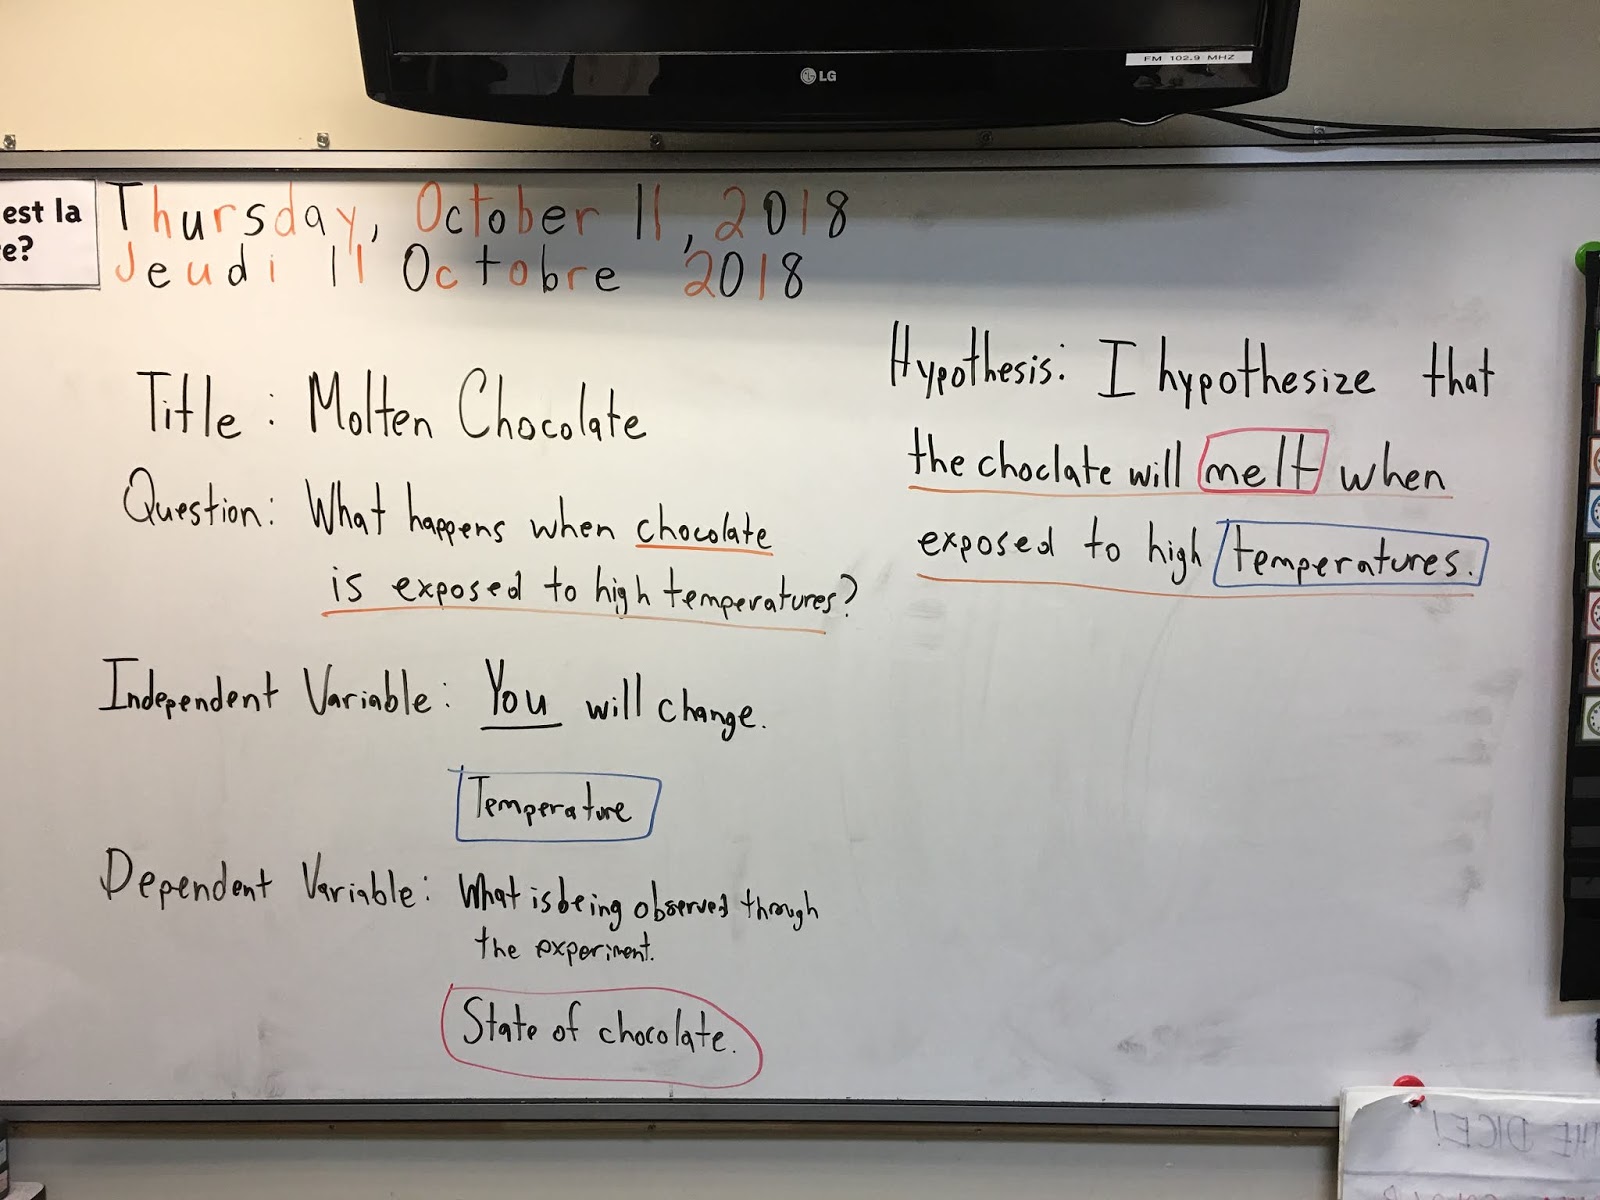 LG
FM 102.9 MHZ
est la
e?
Thursday, October 11, 2018
Jeudi 11 Octobre 2018
Title: Molten Chocolate
Question: What happens when chocolate
is exposed to high temperatures?
Independent Variable: You will change.
Temperature
Dependent Variable: What is being observed through
the experiment.
State of chocolate.
Hypothesis: I hypothesize that
the choclate will melt when
exposed to high temperatures.
DICE!